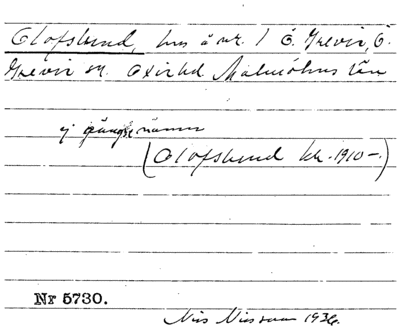 Olofslund, hus å nr. 1 Ö. Grevie, Ö.
Grevie sn. Oxie hd Malmöhus län
ej gängse namn
(Olofslund kk. 1910–.)
Nr 5730.
Nils Nilsson 1936.